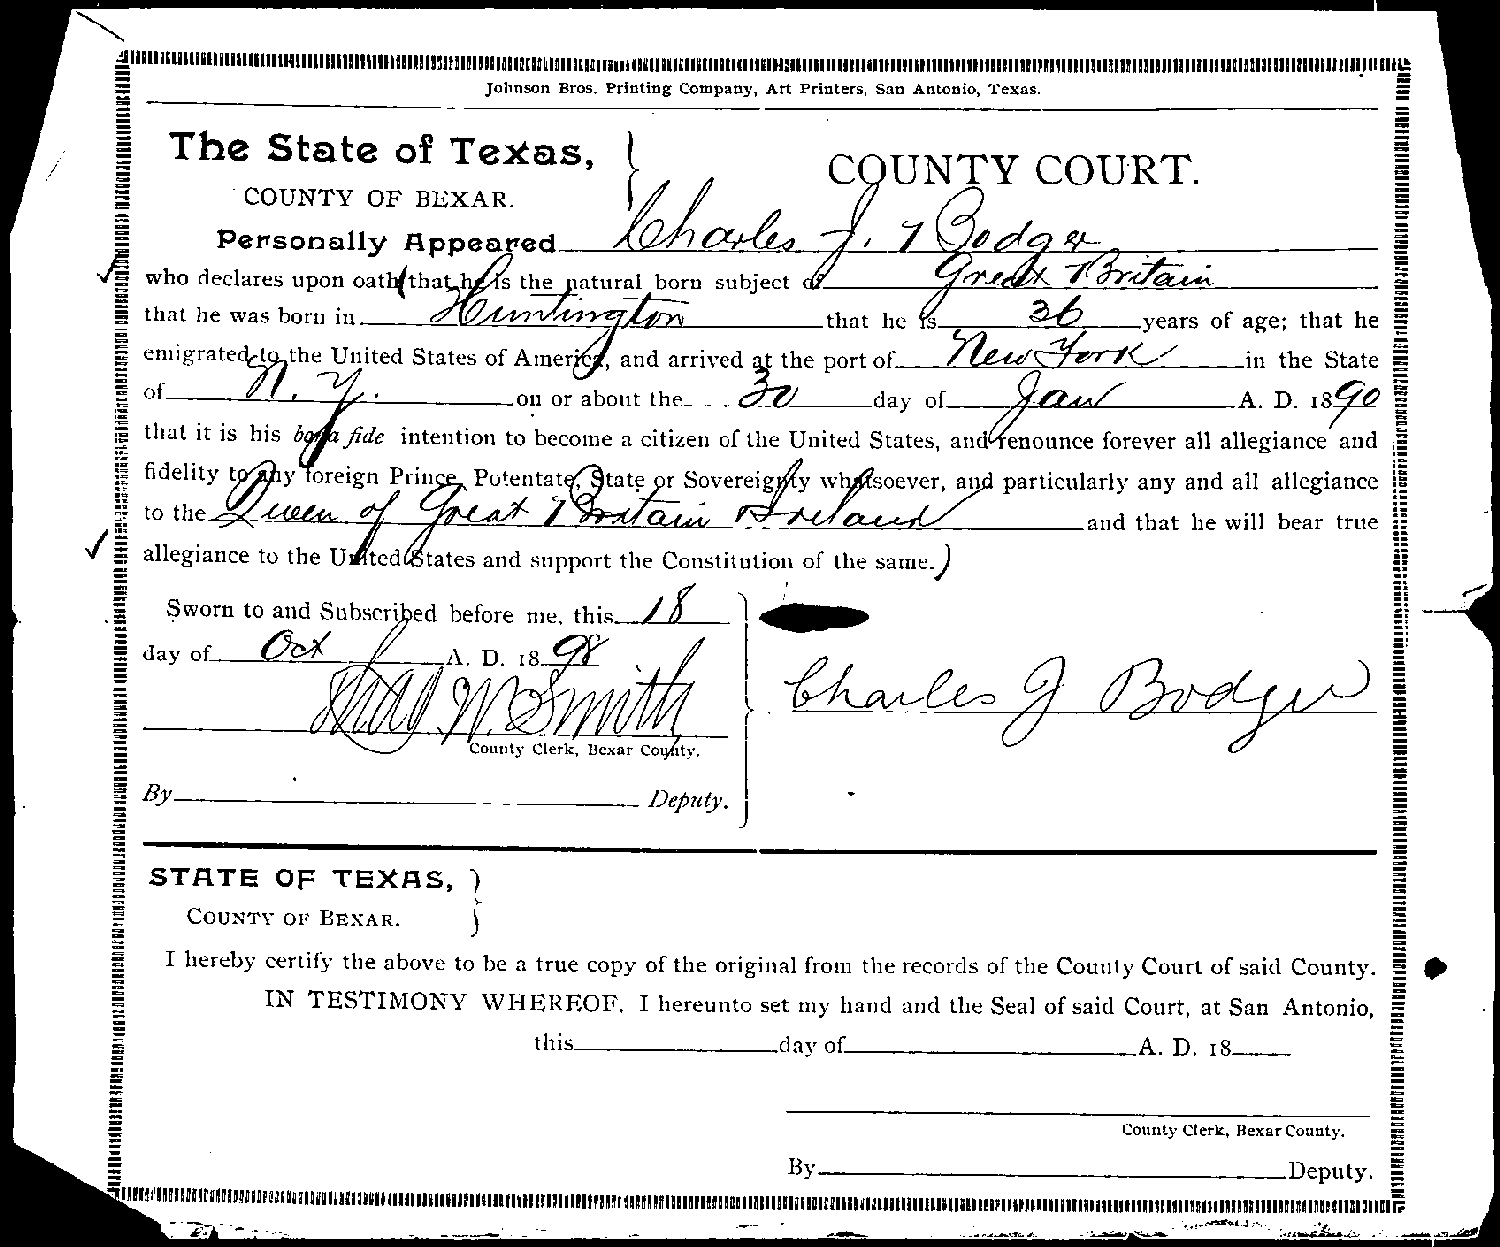 Johnson Bros. Printing Company, Art Printers, San Antonio, Texas.
The State of Texas, }
COUNTY COURT.
COUNTY OF BEXAR.
Personally Appeared Charles J. Bodger
who declares upon oath (that he is the natural born subject of Great Britain
that he was born in Huntington that he is 36 years of age; that he
emigrated to the United States of America, and arrived at the port of New York in the State
of N. Y. on or about the 30 day of Jan A. D. 1890
that it is his bona fide intention to become a citizen of the United States, and renounce forever all allegiance and
fidelity to any foreign Prince, Potentate, State or Sovereignty whatsoever, and particularly any and all allegiance
to the Queen of Great Britain & Ireland and that he will bear true
allegiance to the United States and support the Constitution of the same.)
Sworn to and Subscribed before me, this 18
day of Oct A. D. 1898
Thad W. Smith
Charles J Bodger
County Clerk, Bexar County.
By Deputy.
STATE OF TEXAS, }
COUNTY OF BEXAR.
I hereby certify the above to be a true copy of the original from the records of the County Court of said County.
IN TESTIMONY WHEREOF, I hereunto set my hand and the Seal of said Court, at San Antonio,
this day of A. D. 18
County Clerk, Bexar County.
By Deputy.